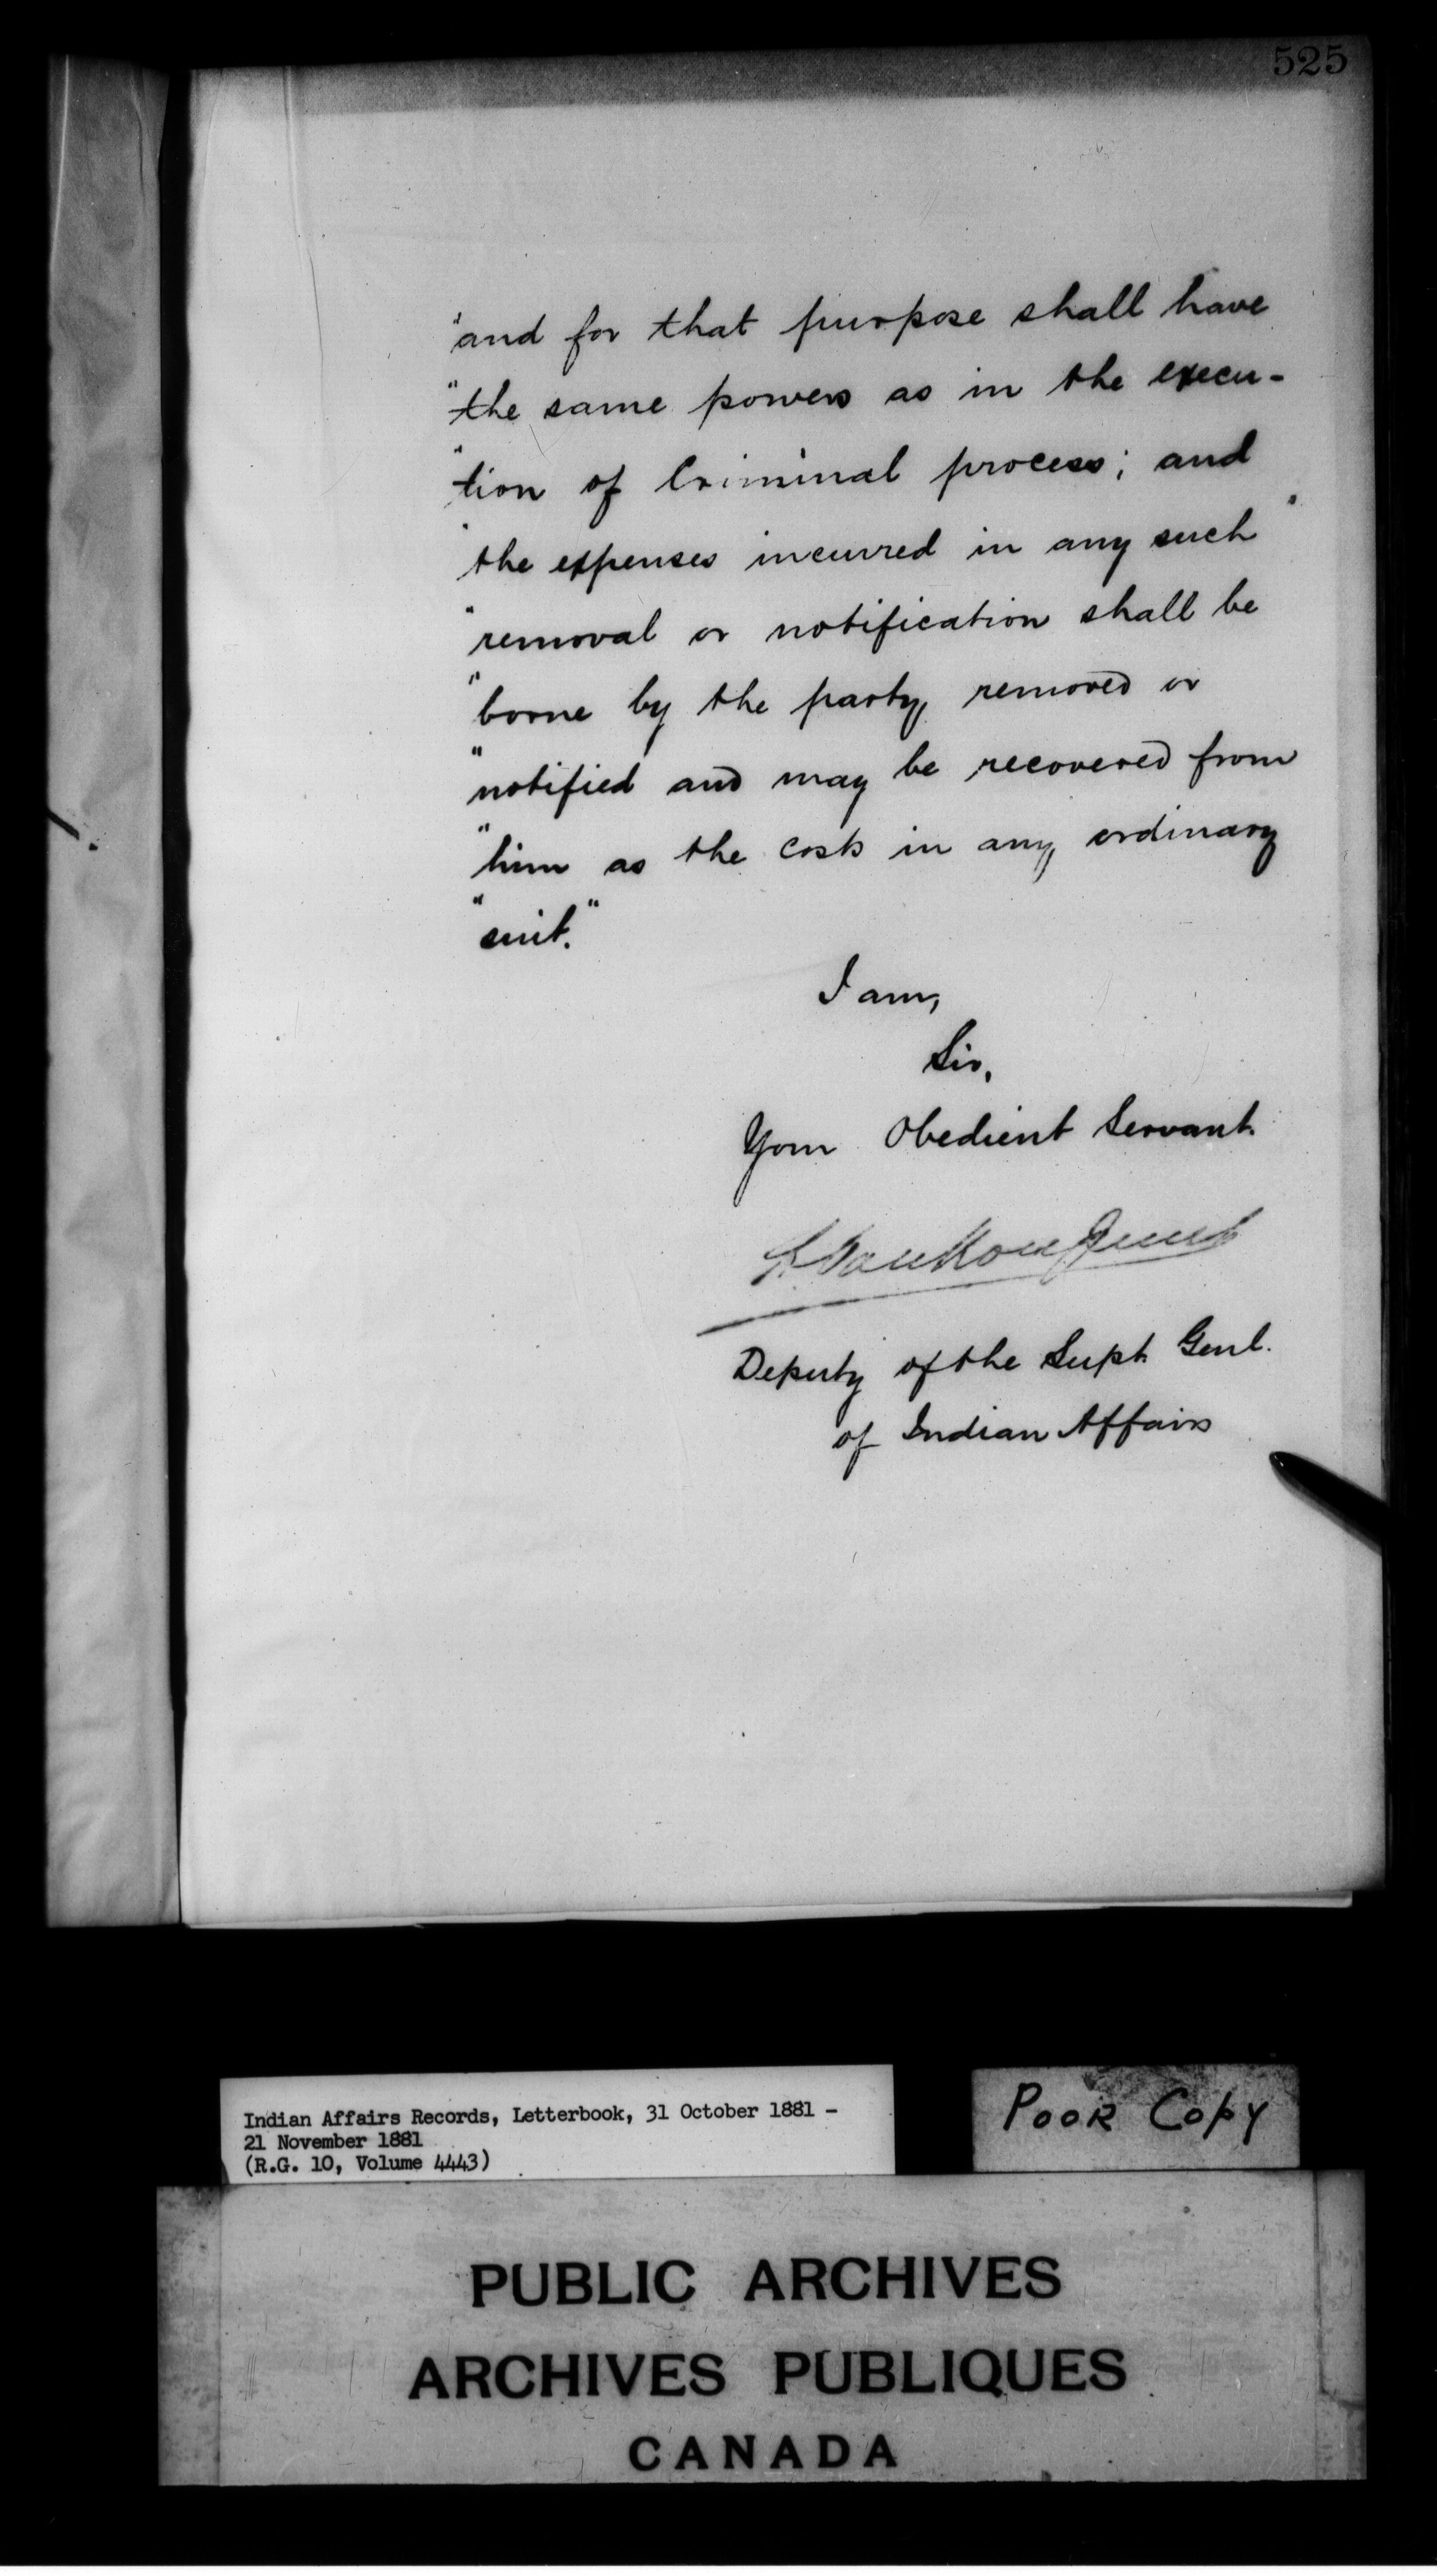 525
"and for that purpose shall have
"the same powers as in the execu-
"tion of Criminal process; and
"the expenses incurred in any such "
"removal or notification shall be
"borne by the party removed or
"notified and may be recovered from
"him as the costs in any ordinary
"suit."
I am,
Sir,
Your Obedient Servant.
L. VanKoughnet
Deputy of the Supt. Genl.
of Indian Affairs
Indian Affairs Records, Letterbook, 31 October 1881 -
21 November 1881
(R.G. 10, Volume 4443)
POOR COPY
PUBLIC ARCHIVES
ARCHIVES PUBLIQUES
CANADA